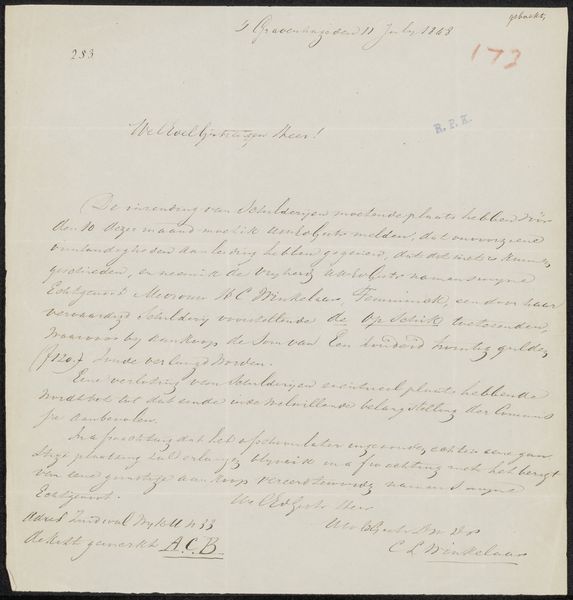 gebachte
's Gravenhage den 11 July 1863
173
283
R.P.K.
Wel Edel Gestrenge Heer!
De inzending van Schilderijen moetende plaats hebben vóór
den 10 dezer maand moet ik UwEdGestr melden, dat onvoorziene
omstandigheden aanleiding hebben gegeven, dat dit niet is kunnen
geschieden, en neem ik de vryheid UwEdGestr namens myne
Echtgenoot Mevrouw H C Winkelaar, Temminck, een door haar
vervaardigd Schildery voorstellende de Opschik toetezenden,
waarvoor by aankoop de Som van Een honderd twintig gulden
(f120,-) zoude verlangd worden.
Eene verloting van Schilderyen eventueel plaats hebbende
wordt het tot dat einde in de welwillende belangstelling der Commis
sie aanbevolen.
In afwachting dat het ofschoon later ingezonden, echter eene gun
stige plaatsing zal erlangen blyve ik in afwachting met het berigt
van eene gunstige aankoop vereerd te worden namens myne
Echtgenoot.
WelEdGestr Heer
UwEdGestr Dw Dr
C L Winkelaar
Adres Zuidwal Wyk U N 33
de kist gemerkt A.C.B.